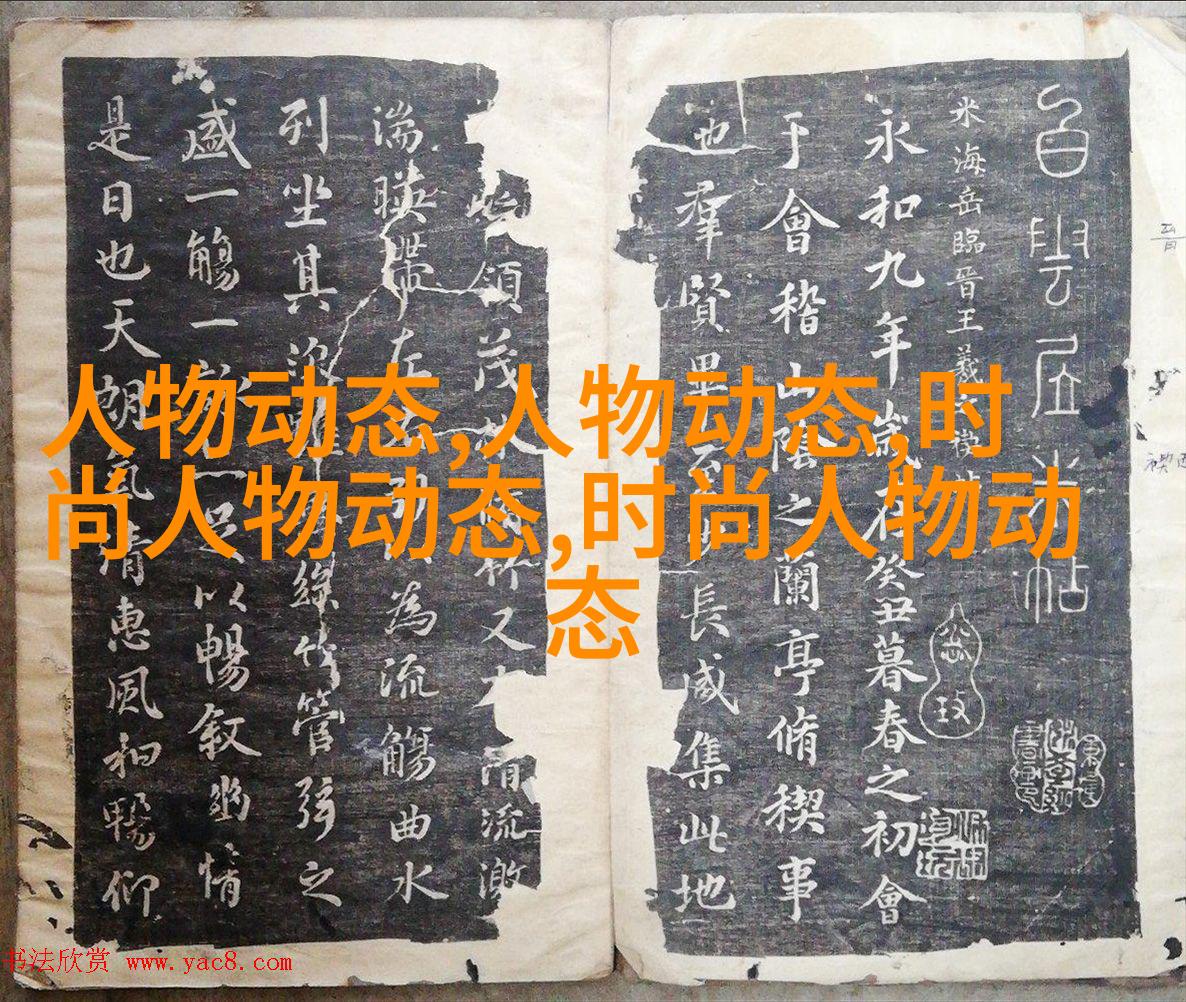 人物动态,人物动态,时
尚人物动态,时尚人物动
态
白雲居米帖
米海岳臨晉王羲
永和九年歲在癸丑暮春之初會
于會稽山陰之蘭亭脩稧事
也羣賢畢至少長咸集此地
領茂林竹又有清流激
湍暎帶左右引以為流觴曲水
列坐其次雖無絲竹管弦之
盛一觴一詠足以暢叙幽情
是日也天朗氣清惠風和暢仰
书法欣赏 www.yac8.com